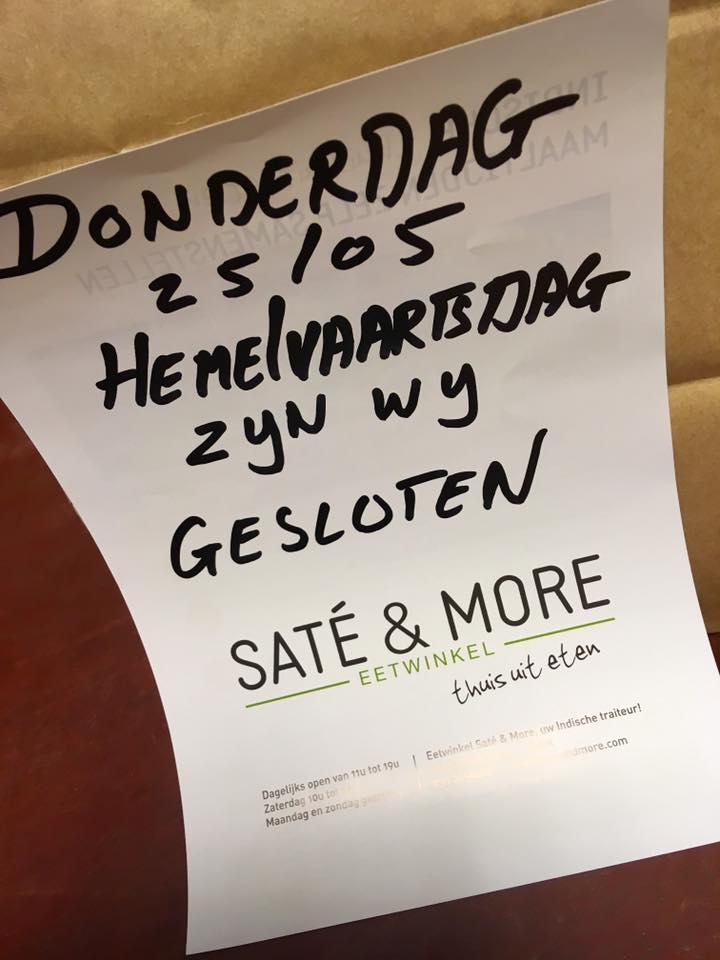 DONDERDAG
25/05
HEMELVAARTSDAG
ZYN WY
GESLOTEN
SATÉ & MORE
EETWINKEL
thuis uit eten
Dagelijks open van 11u tot 19u
Zaterdag 10u tot
Maandag en zondag
Eetwinkel Saté & More, uw Indische traiteur!
andmore.com
INDISCHE
MAALTIJDEN ZELF SAMENSTELLEN